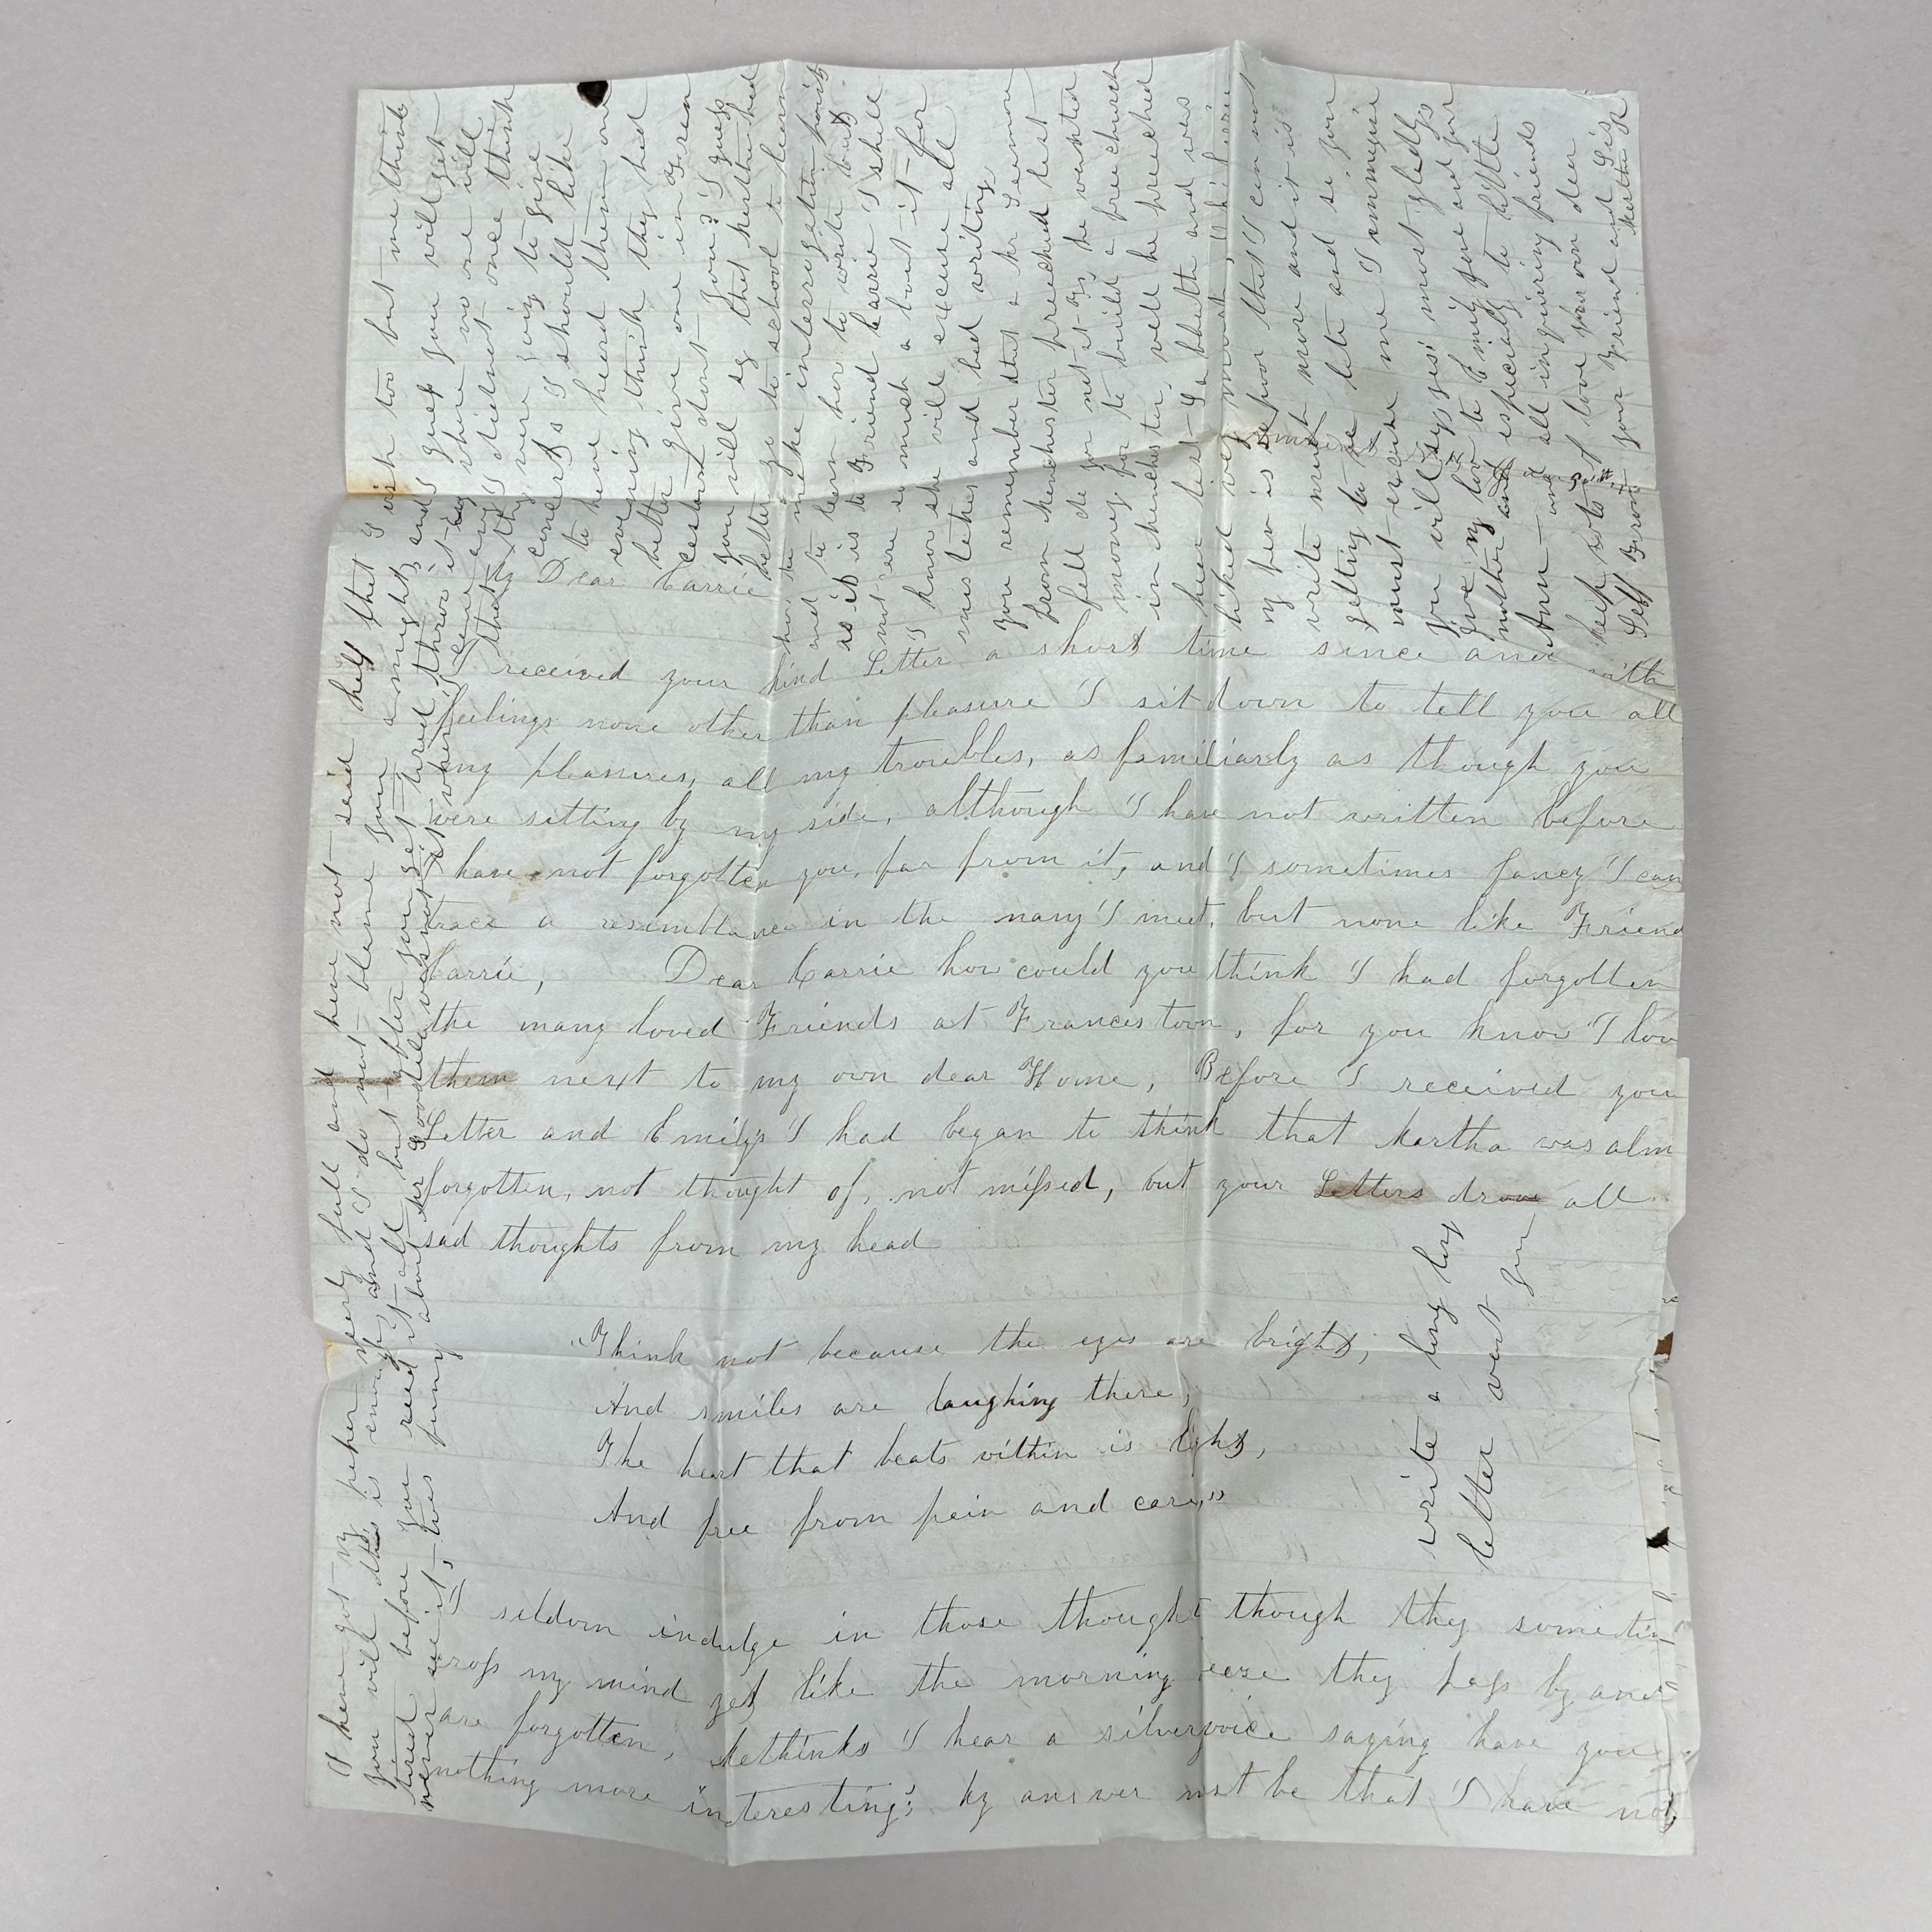 Dear Carrie
I received your kind Letter a short time since and with
feelings none other than pleasure I sit down to tell you all
my pleasures, all my troubles, as familiarly as though you
were setting by my side, although I have not written before
I have not forgotten you, far from it, and I sometimes fancy I can
trace a resemblance in the many I meet, but none like Friend
Carrie, Dear Carrie how could you think I had forgotten
the many loved Friends at Francestown, for you know I lov
them next to my own dear Home, Before I received you
Letter and Emily's I had began to think that Martha was alm
forgotten, not thought of, not missed, but your Letters drove all
sad thoughts from my head
"Think not because the eyes are bright,
And smiles are laughing there,
The heart that beats within is light,
And free from pain and care,"
I seldom indulge in those thought though they sometim
cross my mind yet like the morning they pass by and
are forgotten, Methinks I hear a silver voice saying have you
nothing more interesting; My answer must be that I have not,
I have got my paper nearly full and have not said half that I wish to but me think
you will this is enough and I do not blame you a
tired before you read it all but after you get tired throw it
never see it, was funny about Mr Goodale was not it
they were going to give
concerts I should like
to have heard them one
evening think they had
better give one in Fran
cestown dont you? I guess
you will say that Martha had
better go to school to learn
how to make interrogation points
and to learn her to write but
as it is to Friend Carrie I shall
not care so much about it for
I know she will excuse all
mistakes and bad writing
you remember that a Mr
from Manchester preached last
fall do you not he wanted
money for to build a free church
in Manchester, well he preached
here last Sabbath and was
liked very much,
my pen is so poor that I can not
write much more and it is
getting to be late and so you
must excuse me I
you will say yes; most gladly
give my love to Emily Jane and your
mother and especially to little
Ann and all inquiring friends
keep lots of love for your own dear
self From your Friend and Sis
Martha
write a long long
letter wont you